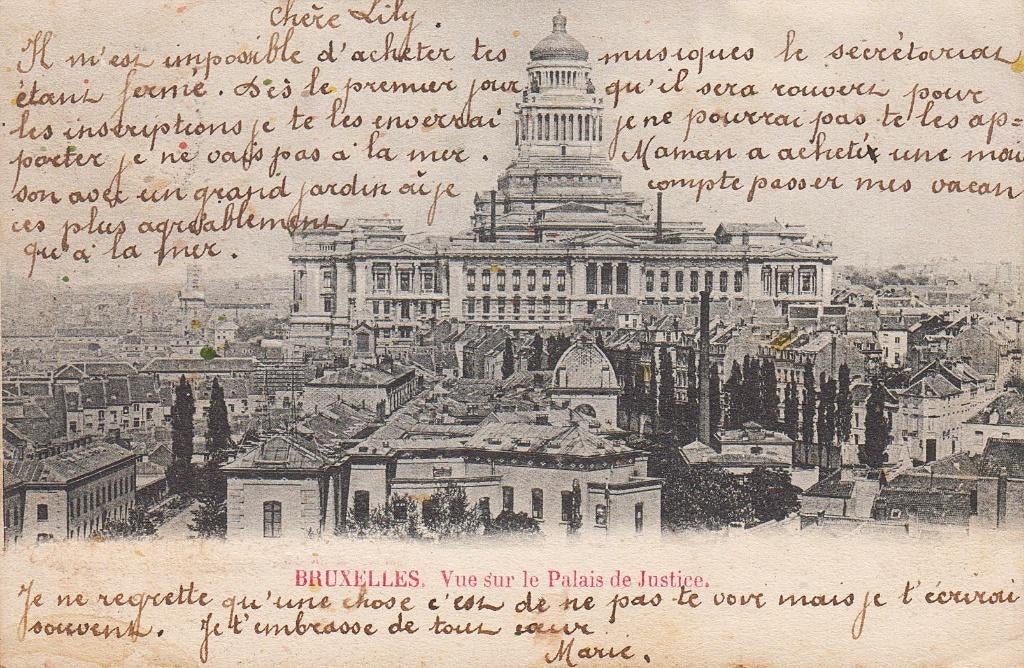 Chère Lily.
Il m'est impossible d'acheter tes musiques le secrétariat
étant fermé. Dès le premier jour qu'il sera rouvert pour
les inscriptions je te les enverrai je ne pourrai pas te les ap=
porter je ne vais pas à la mer. Maman a acheté une mai
son avec un grand jardin où je compte passer mes vacan
ces plus agréablement
qu'à la mer.
BRUXELLES. Vue sur le Palais de Justice.
Je ne regrette qu'une chose c'est de ne pas te voir mais je t'écrirai
souvent. Je t'embrasse de tout cœur
Marie.